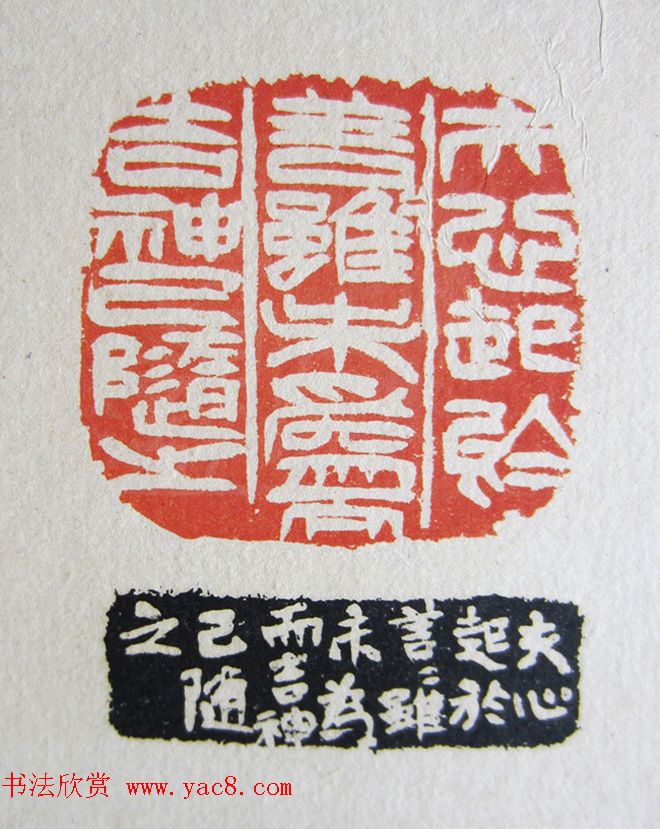 夫心起於
善雖未為而
吉神已隨之
夫心
起於
善〻雖
未為
而吉神
已随
之
书法欣赏 www.yac8.com